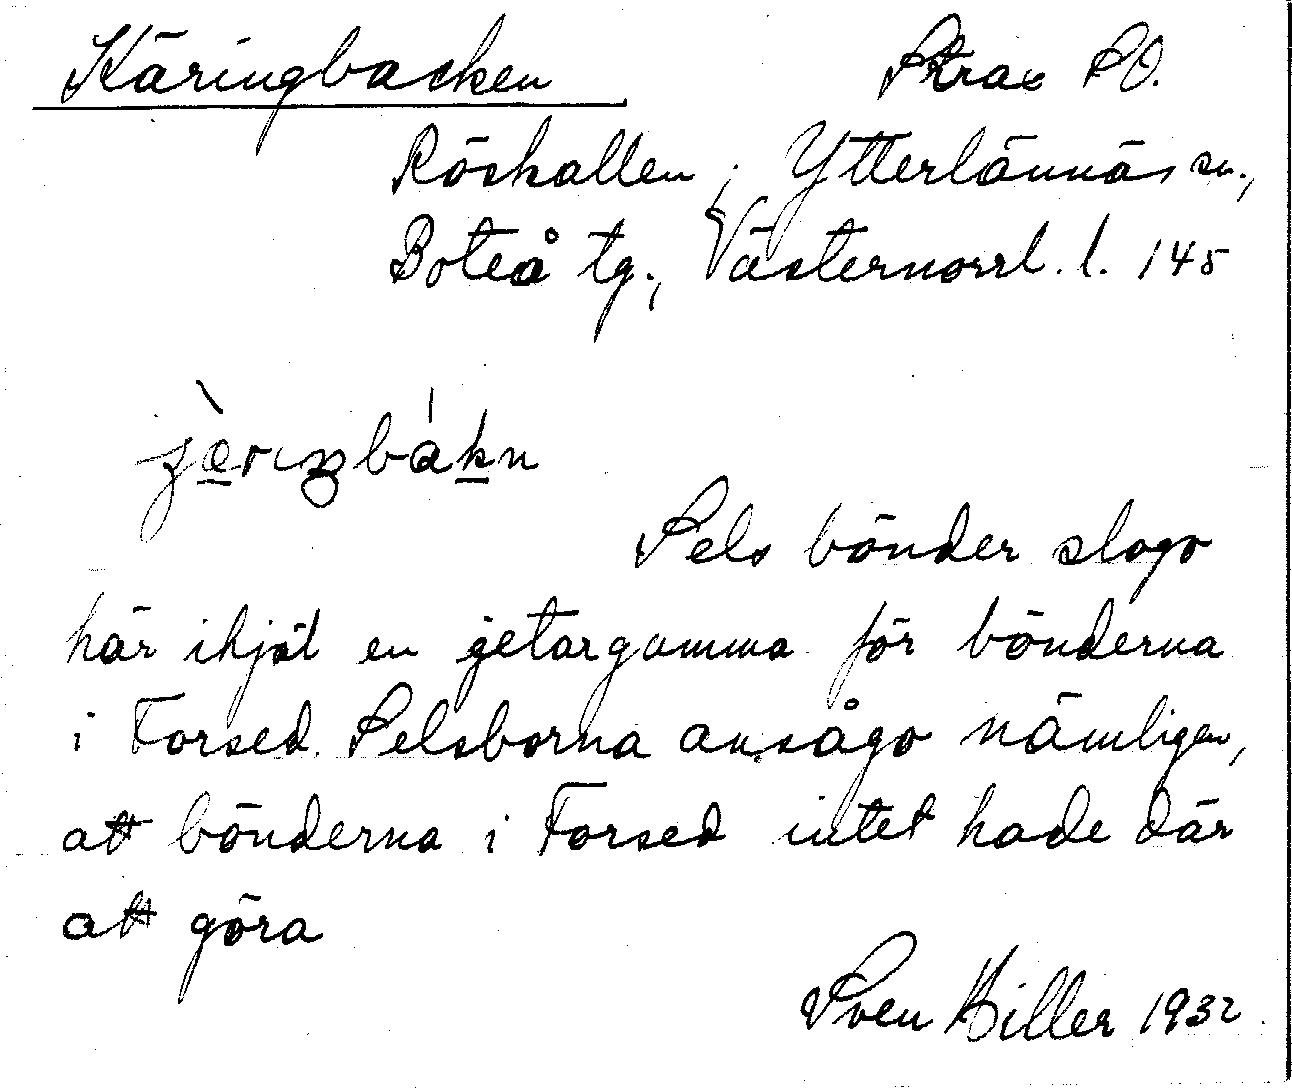 Käringbacken Strax SO.
Röskallen, Ytterlännäs sn.,
Boteå tg., Västernorrl. l. 145
Sels bönder slogo
här ihjäl en getargumma för bönderna
i Forsed. Selsborna ansågo nämligen,
att bönderna i Forsed intet hade där
att göra
Sven Hiller 1932